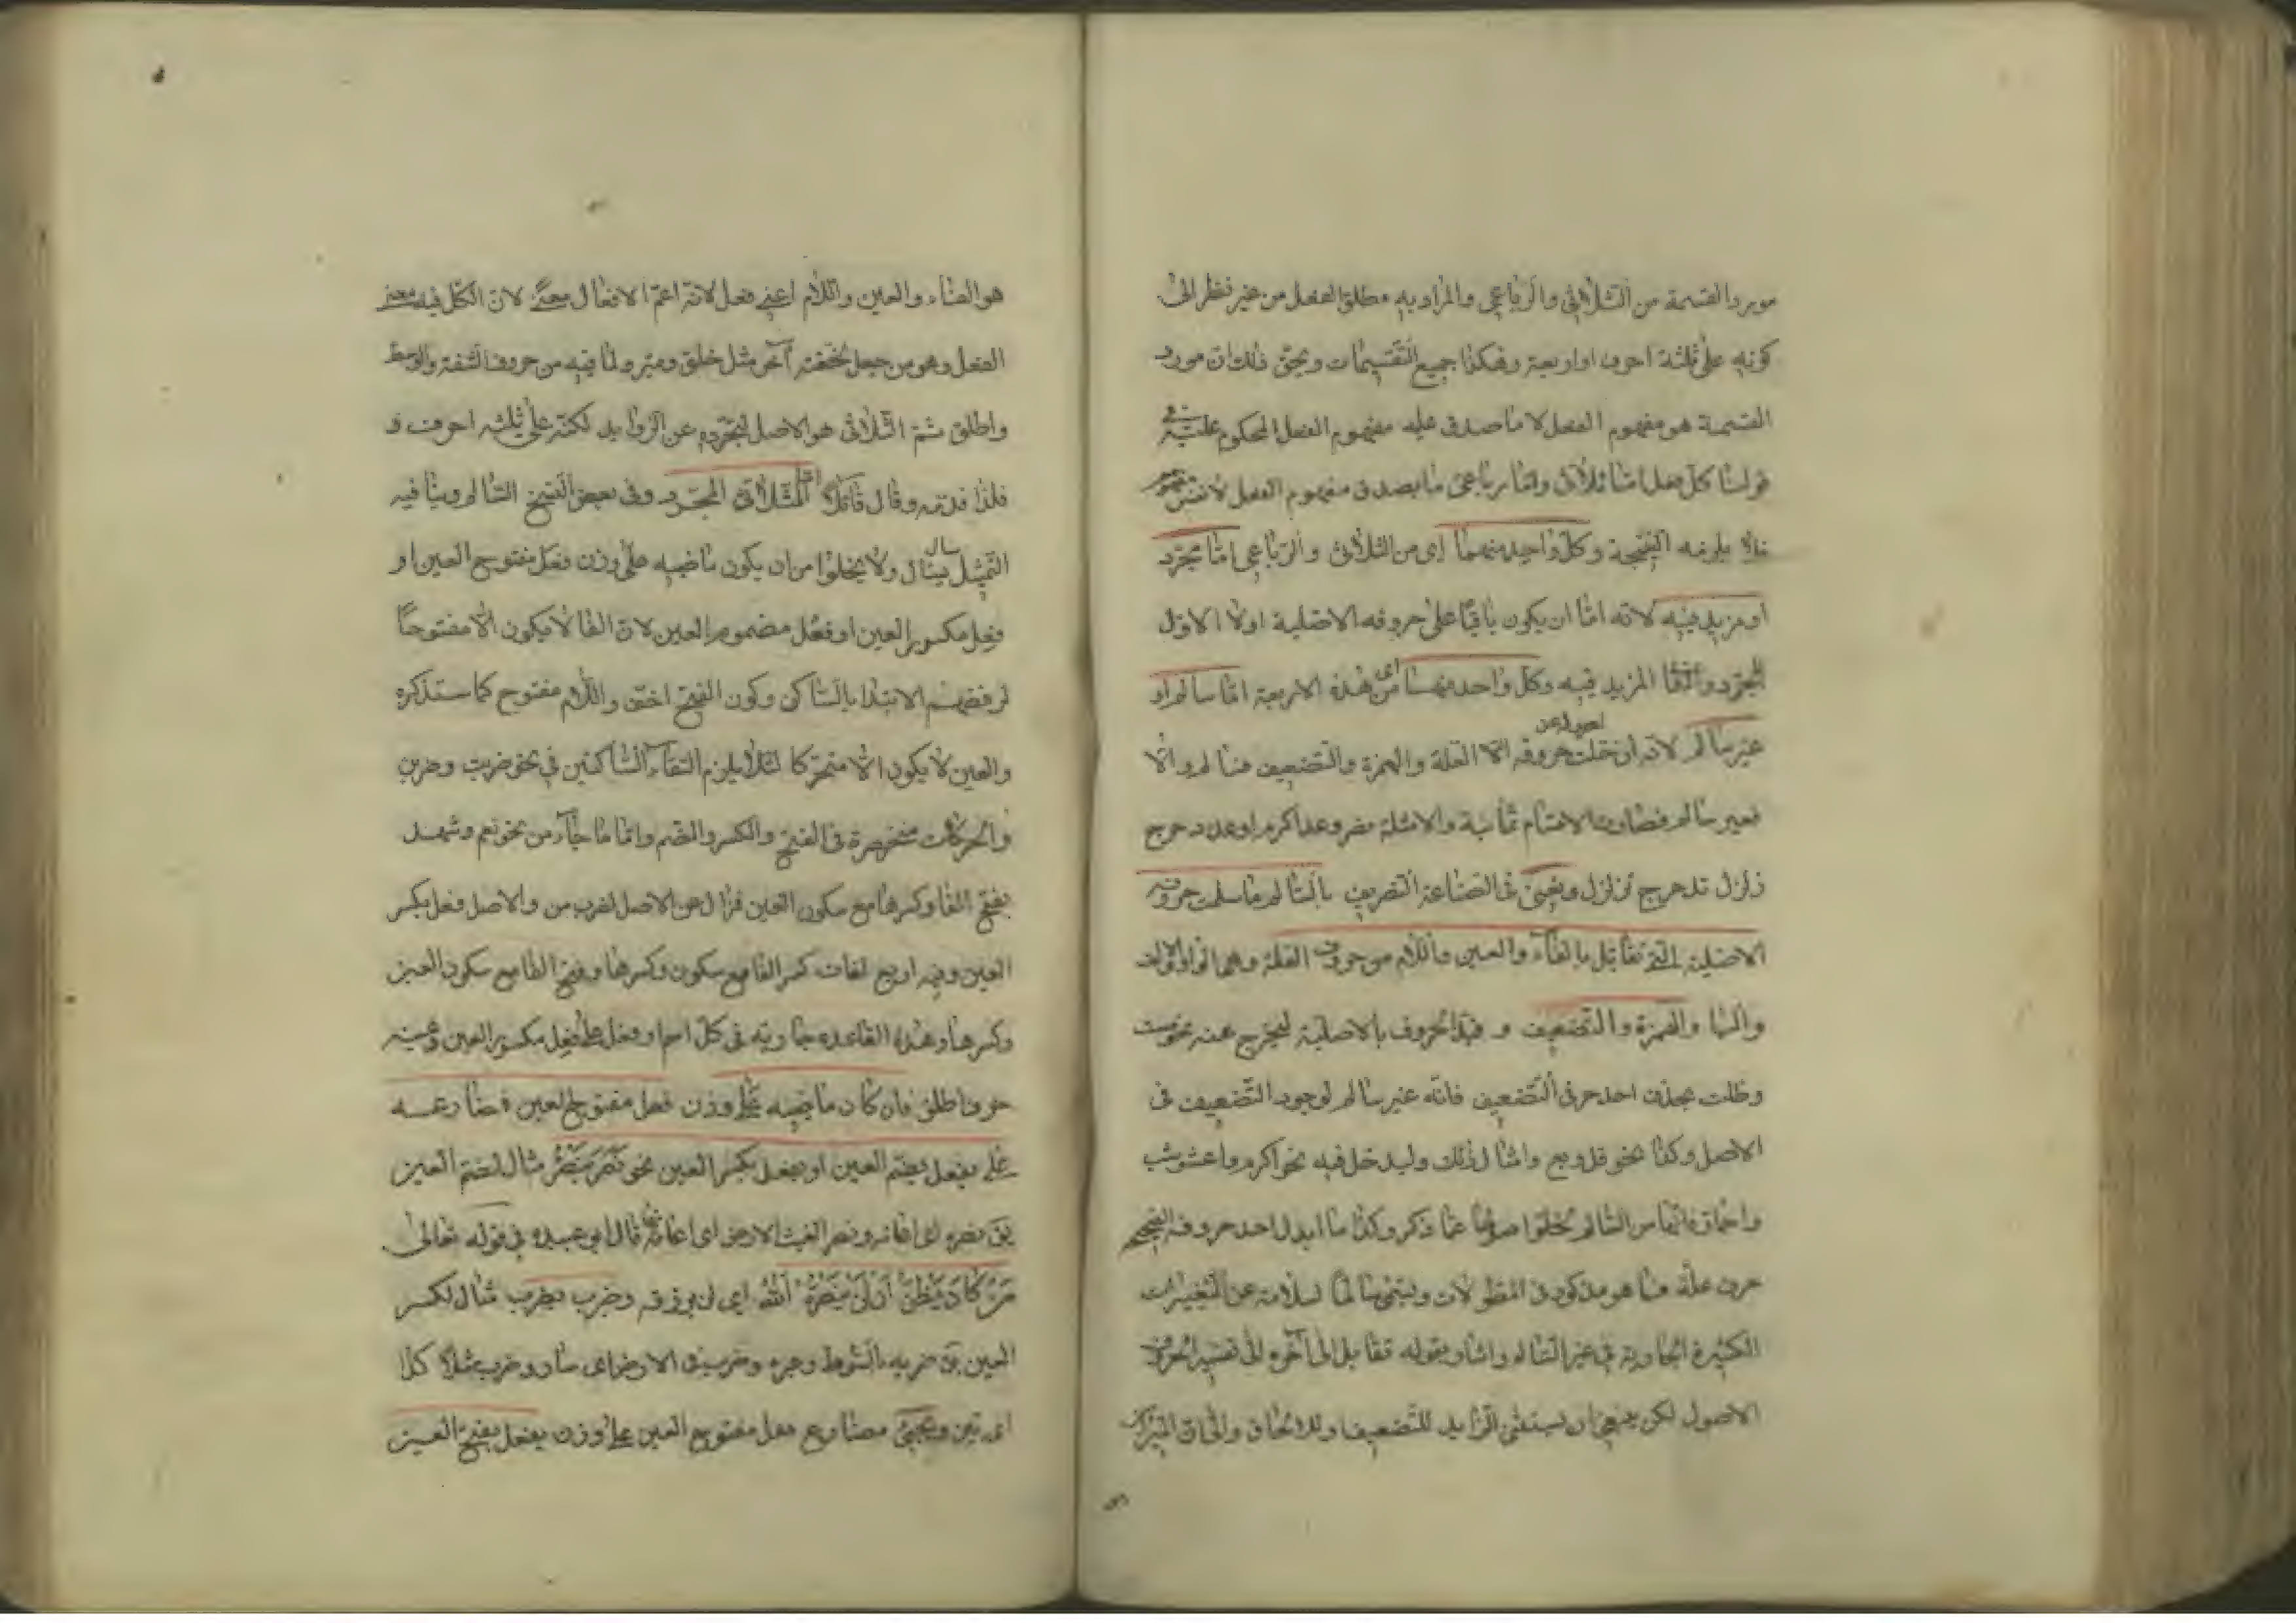 مورد القسمة من الثلاثى والرباعى والمراد به مطلق الفعل من غير نظر الى
كونه على ثلثة احرف او اربعة وهكذا جميع التقسيمات وتحقق ذلك ان مورد
القسمة هو مفهوم الفعل لا ما صدق عليه مفهوم الفعل المحكوم عليه فى
قولنا كل فعل اما ثلاثى واما رباعى ما يصدق مفهوم الفعل لا نفس مفهوم
فلا يلزمه النتيجة وكل واحد منهما اى من الثلاثى والرباعى اما مجرد
او مزيد فيه لانه اما ان يكون باقيا على حروفه الاصلية اولا الاول
المجرد والثانى المزيد فيه وكل واحد منها اى من هذه الاربعة اما سالم او
غير سالم لانه ان خلت حروفه العلة والهمزة والتضعيف فسالم والا
فغير سالم فصارت الاقسام ثمانية والامثلة نصر وعد اكرم اوعد دحرج
زلزل تدحرج تزلزل ونعنى فى الصناعة التصريف بالسالم ما سلمت حروفه
الاصلية التى تقابل بالفاء والعين واللام من حروف العلة وهى الواو والالف
واليا والهمزة والتضعيف و قيد الحروف بالاصلية ليخرج عنه نحو مست
وظلت بحذف احد حرفى التضعيف فانه غير سالم لوجود التضعيف فى
الاصل وكذا نحو قل وبع وامثال ذلك وليدخل فيه نحو اكرم واعشوشب
واحمار فانها من السالم لخلو اصولها عما ذكر وكذا ما ابدل احد حروفه الصحيح
حرف علة مما هو مذكور فى المطولات ويسمى سالما لسلامته عن التغييرات
الكثيرة الجارية فى غير السالم واشار بقوله تقابل الى آخره الى تفسير الحروف
الاصول لكن ينبغى ان يستثنى الزايد للتضعيف وللالحاق
هو الفاء والعين واللام اعنى فعل لانه اعم الافعال معنى لان الكل فيه معنى
الفعل وهو من جعل لخفته آخر مثل خلق ومير ولما فيه من حروف الشفة والوسط
واطلق ثم الثلاثى هو الاصل لتجرده عن الزوايد لكنه على ثلثه احرف و
فلذا قدمه وقال اما الثلاثى المجرد وفى بعض النسخ السالم وينافيه
التمثيل بسأل يسال ولا يخلوا من ان يكون ماضيه على وزن فعل مفتوح العين او
فعل مكسور العين او فعل مضموم العين لان الفا لا يكون الا مفتوحا
لرفضهم الابتدا بالساكن وكون الفتح اخف واللام مفتوح كما ستذكره
والعين لا يكون الا متحركا لئلا يلزم التقاء الساكنين فى نحو ضربت وضربن
والحركات منحصرة فى الفتح والكسر والضم واما ما جاء من نحو نعم وشهد
بفتح الفا وكسرها مع سكون العين فزال عن الاصل لضرب من والاصل فعل بكسر
العين وفيه اربع لغات كسر الفا مع سكون وكسرها وفتح الفا مع سكون العين
وكسرها وهذه القاعده جارية فى كل اسم او فعل على فعل مكسور العين وعينه
حرف حلق فان كان ماضيه على وزن فعل مفتوح العين فمضارعه
على يفعل بضم العين او يفعل بكسر العين نحو نصر ينصر مثال لضم العين
يق نصره اى اعانه ونصر الغيث الارض اى اعانها قال ابو عبيده فى قوله تعالى
من كان يظن ان لن ينصره الله اى لن يرزقه وضرب يضرب مثال لكسر
العين يق ضربه بالسوط وغيره وضرب فى الارض اى سار وضرب مثلا كذا
اى بين ويجيئ مضارع فعل مفتوح العين على وزن يفعل بفتح العين